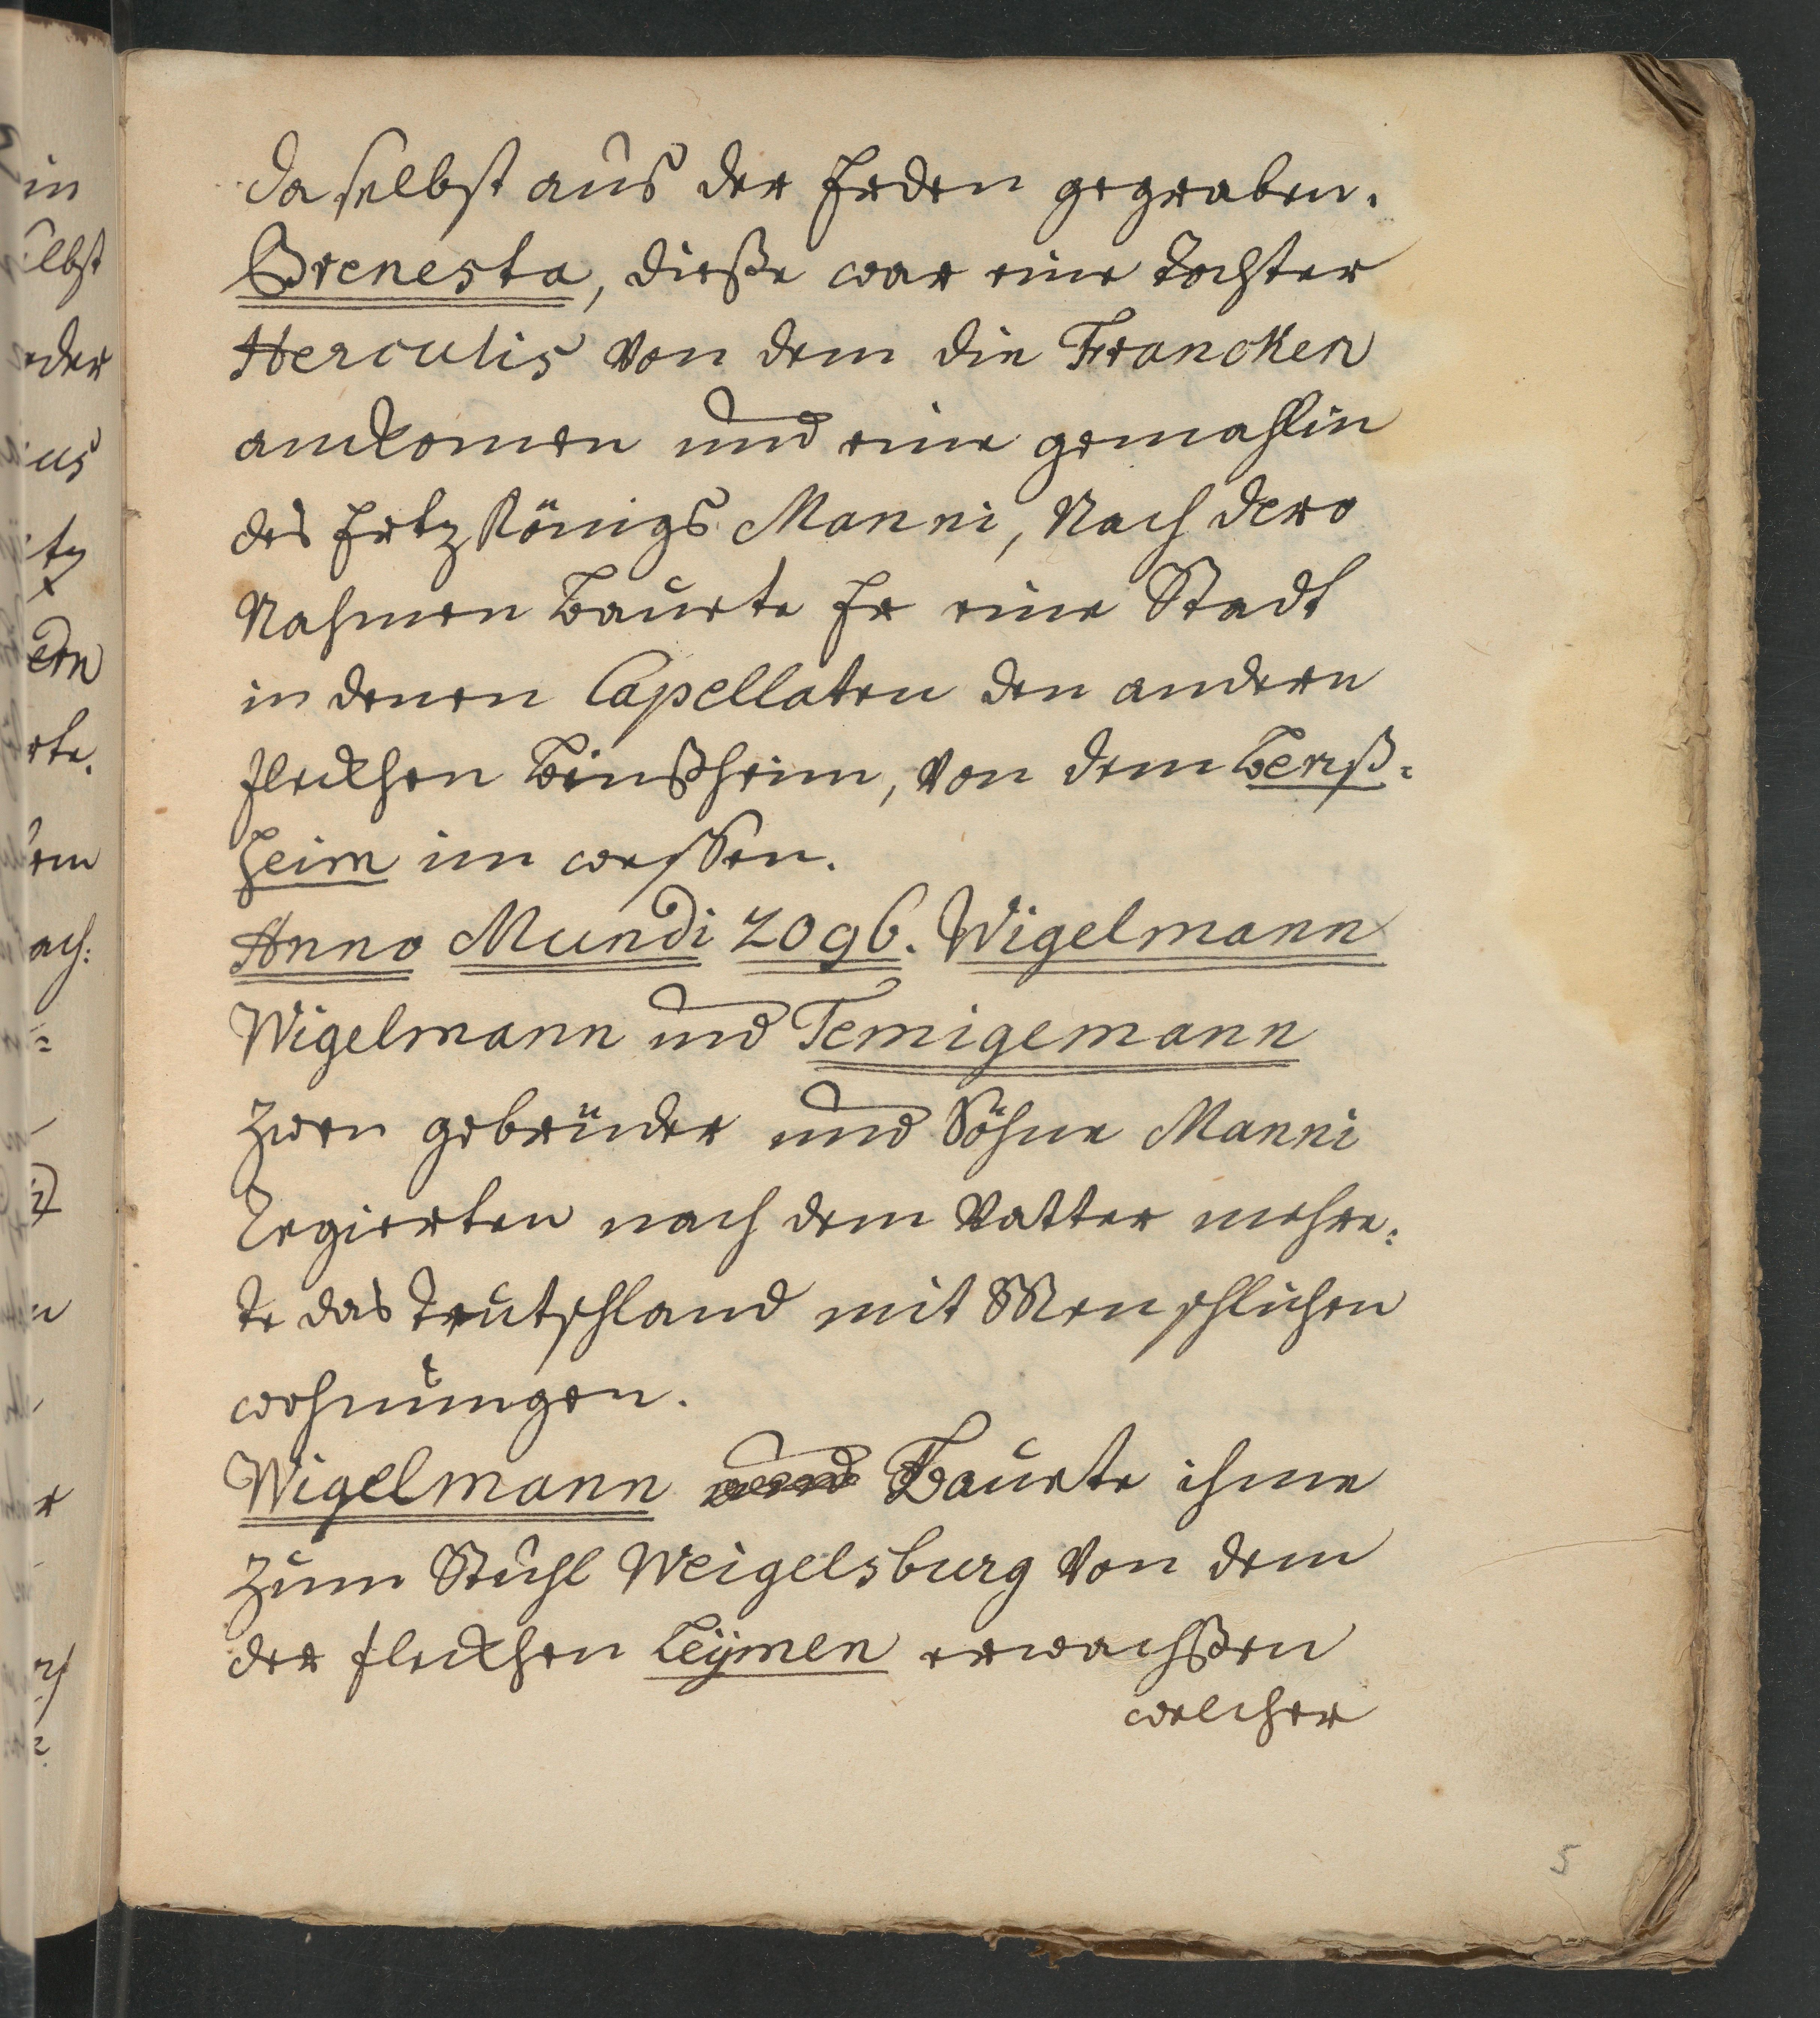 da selbst aus der Erden gegraben.
Brenesta, dieße war eine Tochter
Herculis von dem die Francken
ankomen und eine gemahlin
des Ertz Königs Manni, Nach dero
Nahmen Bauete Er eine Stadt
in denen Capellaten den andern
fleckhen Binßheim, von dem Benß-
heim im
Anno Mundi 2096. Wigelmann
Wigelmann und Temigemann
Zwen gebrüder und Söhne Manni
Regierten nach dem Vatter mehre-
te das Teutschland mit Menschlichen
wohnungen.
Wigelmann Bauete ihme
zum Stuhl Weigelsburg von dem
der fleckhen Leÿmen erwachßen
welcher
5